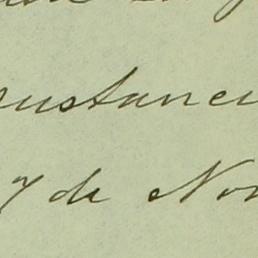 ustanci
7 de Nov